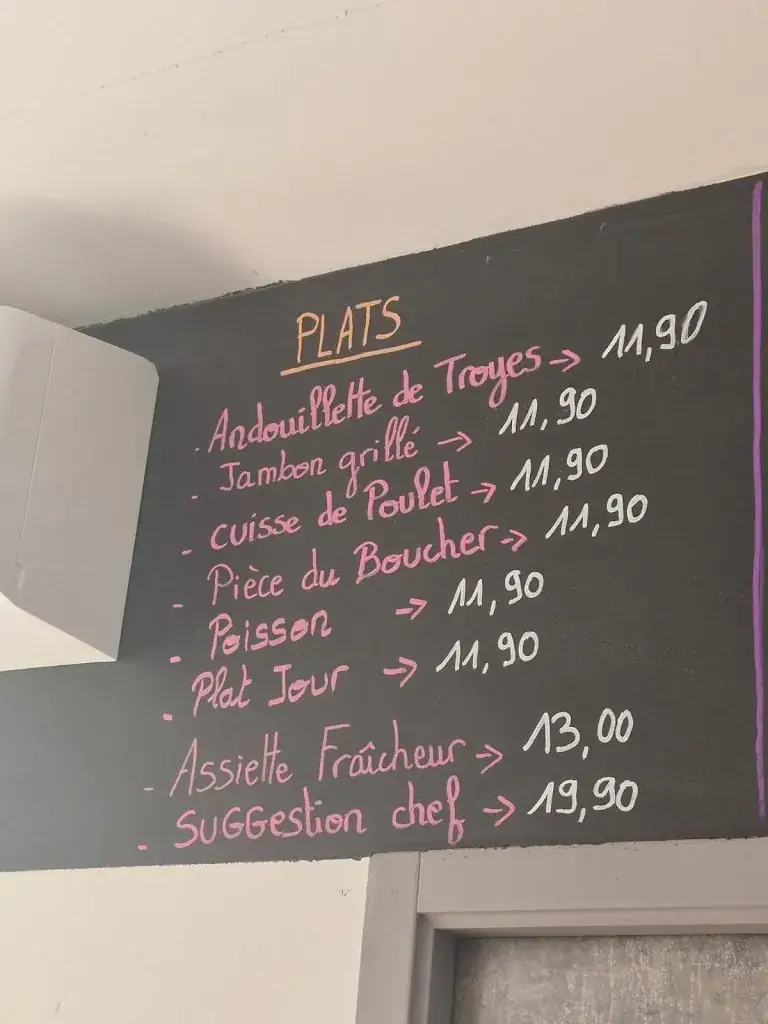 PLATS
- Andouillette de Troyes -> 11,90
- Jambon grillé -> 11,90
- cuisse de Poulet -> 11,90
- Pièce du Boucher -> 11,90
- Poisson -> 11,90
- Plat Jour -> 11,90
- Assiette Fraîcheur -> 13,00
- SUGGestion chef -> 19,90